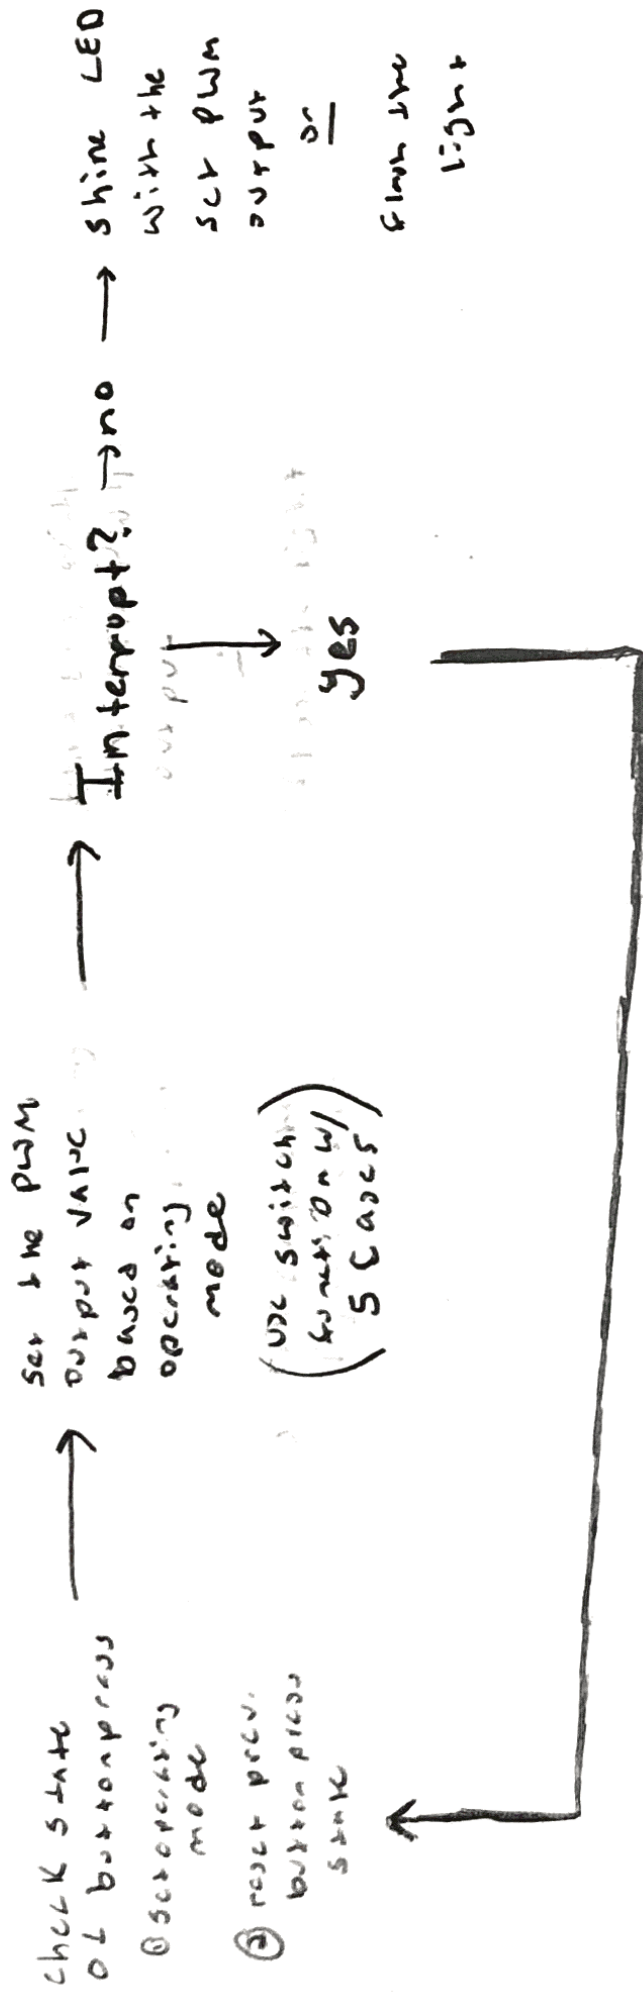 check state
of button press
① set operating
mode
② reset prev.
button press
state
set the PWM
output value
based on
operating
mode
(use switch
function w/
5 cases)
Interrupt? → no
yes
shine LED
with the
set PWM
output
or
flash the
light